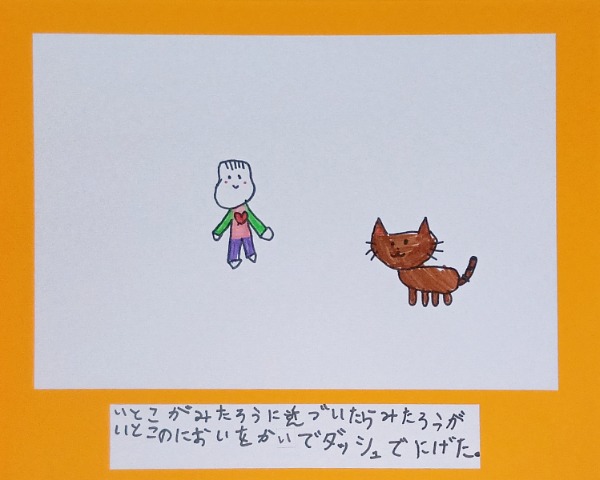 いとこがみたろうに近づいたらみたろうが
いとこのにおいをかいでダッシュでにげた。